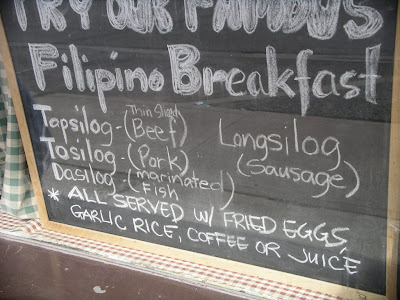 TRY OUR FAMOUS
Filipino Breakfast
Tapsilog - (Thin Sliced Beef)
Tosilog - (Pork)
Dasilog - (marinated Fish)
Longsilog
(Sausage)
* ALL SERVED W/ FRIED EGGS,
GARLIC RICE, COFFEE OR JUICE